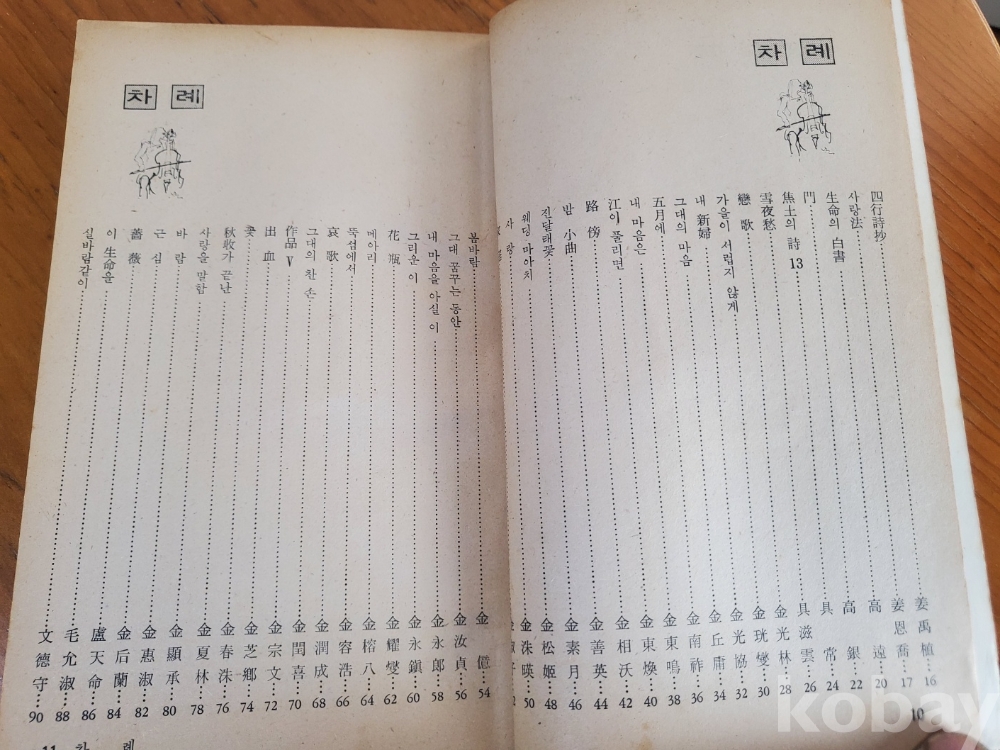 차례
四行詩抄 姜禹植 16
사랑法 姜恩喬 17
生命의 白書 高遠 20
門 高銀 22
焦土의 詩 13 具常 24
雪夜愁 具滋雲 26
戀歌 金光林 28
가을이 서럽지 않게 金珖燮 30
내 新婦 金光協 32
그대의 마음 金丘庸 34
五月에 金南祚 36
내 마음은 金東鳴 38
江이 풀리면 金東煥 40
路傍 金相沃 42
밤 小曲 金善英 44
진달래꽃 金素月 46
웨딩 마아치 金松姬 48
사랑 金洙暎 50
10
차례
봄바람 金億 54
그대 꿈꾸는 동안 金汝貞 56
내 마음을 아실 이 金永郎 58
그리운 이 金永鎭 60
花瓶 金耀燮 62
메아리 金榕八 64
뚝섬에서 金容浩 66
哀歌 金潤成 68
그대의 찬 손 金閏喜 70
作品 Ⅴ 金宗文 72
出血 金芝鄕 74
꽃 金春洙 76
秋收가 끝난 金夏林 78
사랑을 말함 金顯承 80
바람 金惠淑 82
근심 金后蘭 84
薔薇 盧天命 86
이 生命을 毛允淑 88
실바람같이 文德守 90
11 차례
kobay